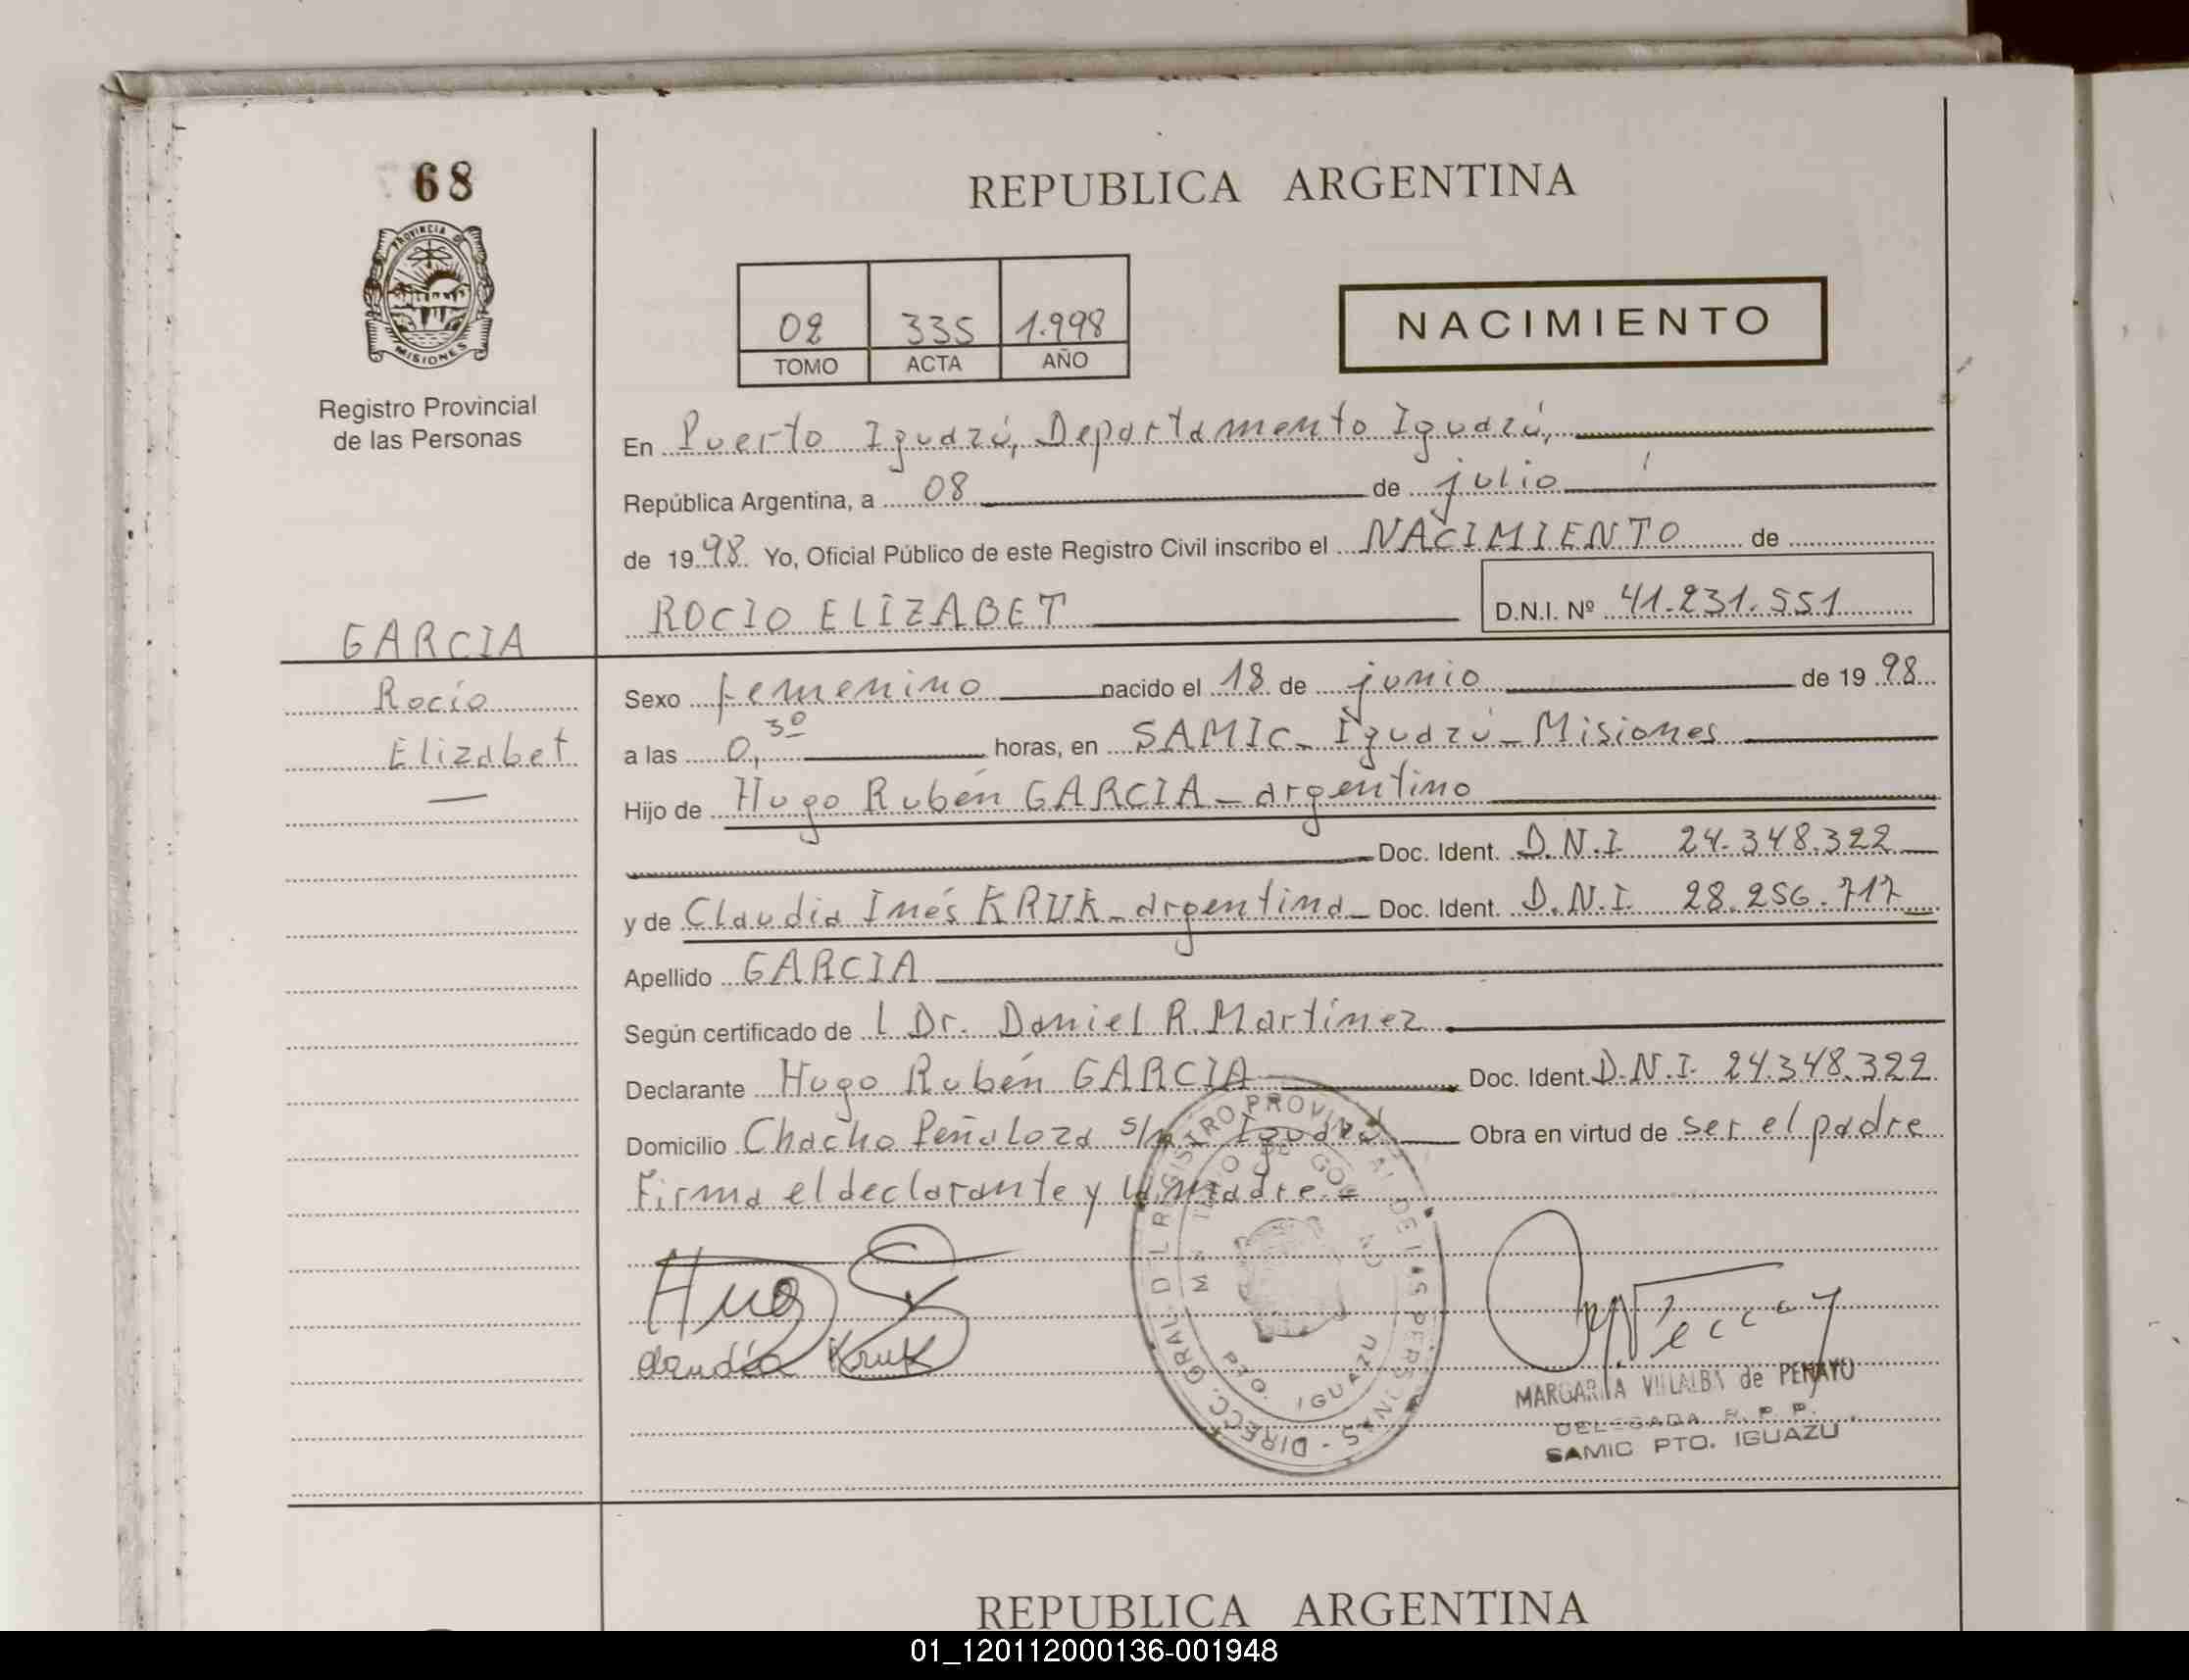 68
PROVINCIA DE
MISIONES
Registro Provincial
de las Personas
GARCIA
Rocío
Elizabet
REPUBLICA ARGENTINA
02 335 1.998
TOMO ACTA AÑO
NACIMIENTO
En Puerto Iguazú, Departamento Iguazú,
República Argentina, a 08 de julio
de 1998. Yo, Oficial Público de este Registro Civil inscribo el NACIMIENTO de
ROCIO ELIZABET D.N.I. Nº 41.231.551
Sexo femenino nacido el 18 de junio de 1998
a las 0,30 horas, en SAMIC - Iguazú - Misiones
Hijo de Hugo Rubén GARCIA - argentino
Doc. Ident. D.N.I 24.348.322
y de Claudia Inés KRUK - argentina - Doc. Ident. D.N.I. 28.256.717
Apellido GARCIA
Según certificado de l Dr. Daniel R. Martínez
Declarante Hugo Rubén GARCIA Doc. Ident. D.N.I. 24.348.322
Domicilio Chacho Peñaloza s/n Iguazú Obra en virtud de ser el padre
Firma el declarante y la madre =
Claudia Kruk
DIRECC. GRAL. DEL REGISTRO PROVINCIAL DE LAS PERSONAS
PTO. IGUAZU
MARGARITA VILLALBA de PENAYO
DELEGADA R. P. P.
SAMIC PTO. IGUAZU
REPUBLICA ARGENTINA
01_120112000136-001948